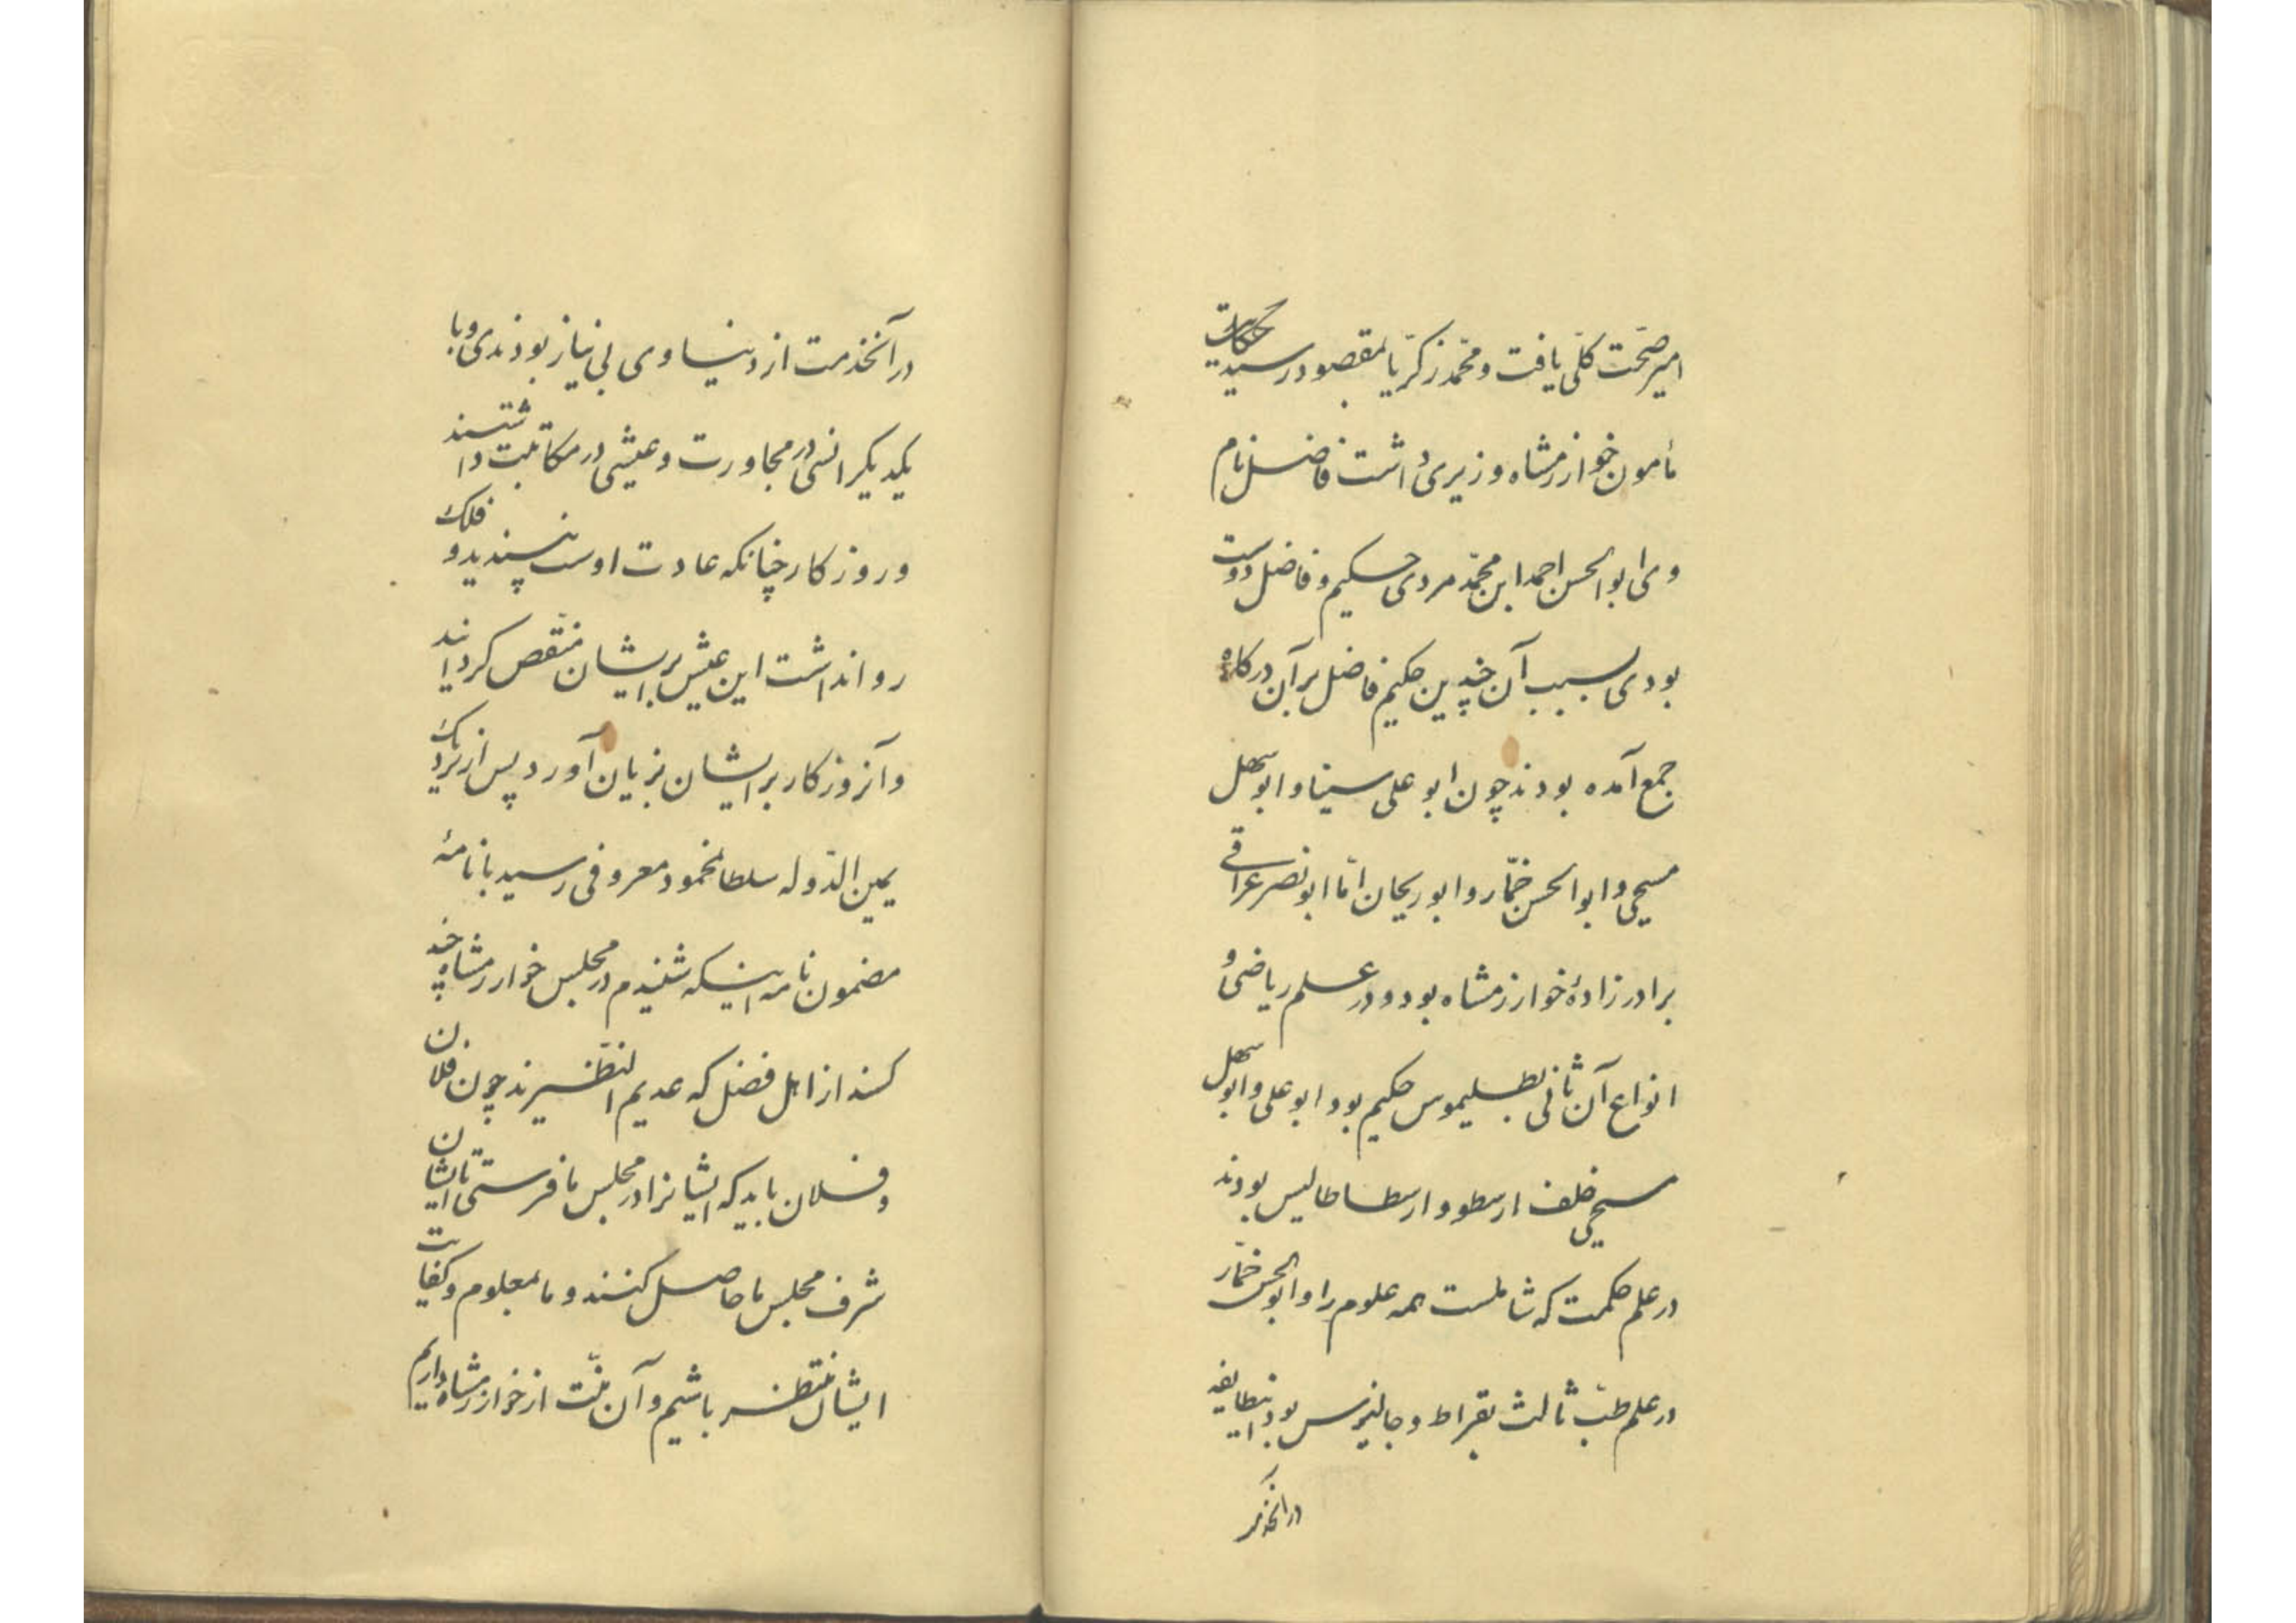 امیر صحّت کلّی یافت و محمّد زکرّیا بمقصود رسید حکایت
مأمون خوارزمشاه وزیری داشت فاضل نام
وی ابوالحسن احمد ابن محمّد مردی حکیم و فاضل دوست
بودی بسبب آن چندین حکیم فاضل بر آن درگاه
جمع آمده بودند چون ابوعلی سینا و ابوسهل
مسیحی و ابوالحسن خمّار و ابوریحان امّا ابونصر عراقی
برادرزادهٔ خوارزمشاه بود و در علم ریاضی و
انواع آن ثانی بطلیموس حکیم بود ابوعلی و ابوسهل
مسیحی خلف ارسطو و ارسطاطالیس بودند
در علم حکمت که شاملست همه علوم را و ابوالحسن خمّار
در علم طبّ ثالث بقراط و جالینوس بود اینطایفه
در آنخدمت
در آنخدمت از دنیاوی بی نیاز بودندی و با
یکدیکر انسی در مجاورت و عیشی در مکاتبت داشتند
و روزکار چنانکه عادت اوست نپسندید و فلک
روا نداشت این عیش بر ایشان منقّص کردانید
و آنروزکار بر ایشان بزیان آورد پس از نزدیک
یمین الدّوله سلطانمحمود معروفی رسید با نامهٔ
مضمون نامه اینکه شنیدم در مجلس خوارزمشاه چند
کسند از اهل فضل که عدیم النّظیرند چون فلان
و فلان باید که ایشانرا در مجلس ما فرستی تا ایشان
شرف مجلس ما حاصل کنند و ما بعلوم و کفایت
ایشان منتظر باشیم و آن منّت از خوارزمشاه داریم